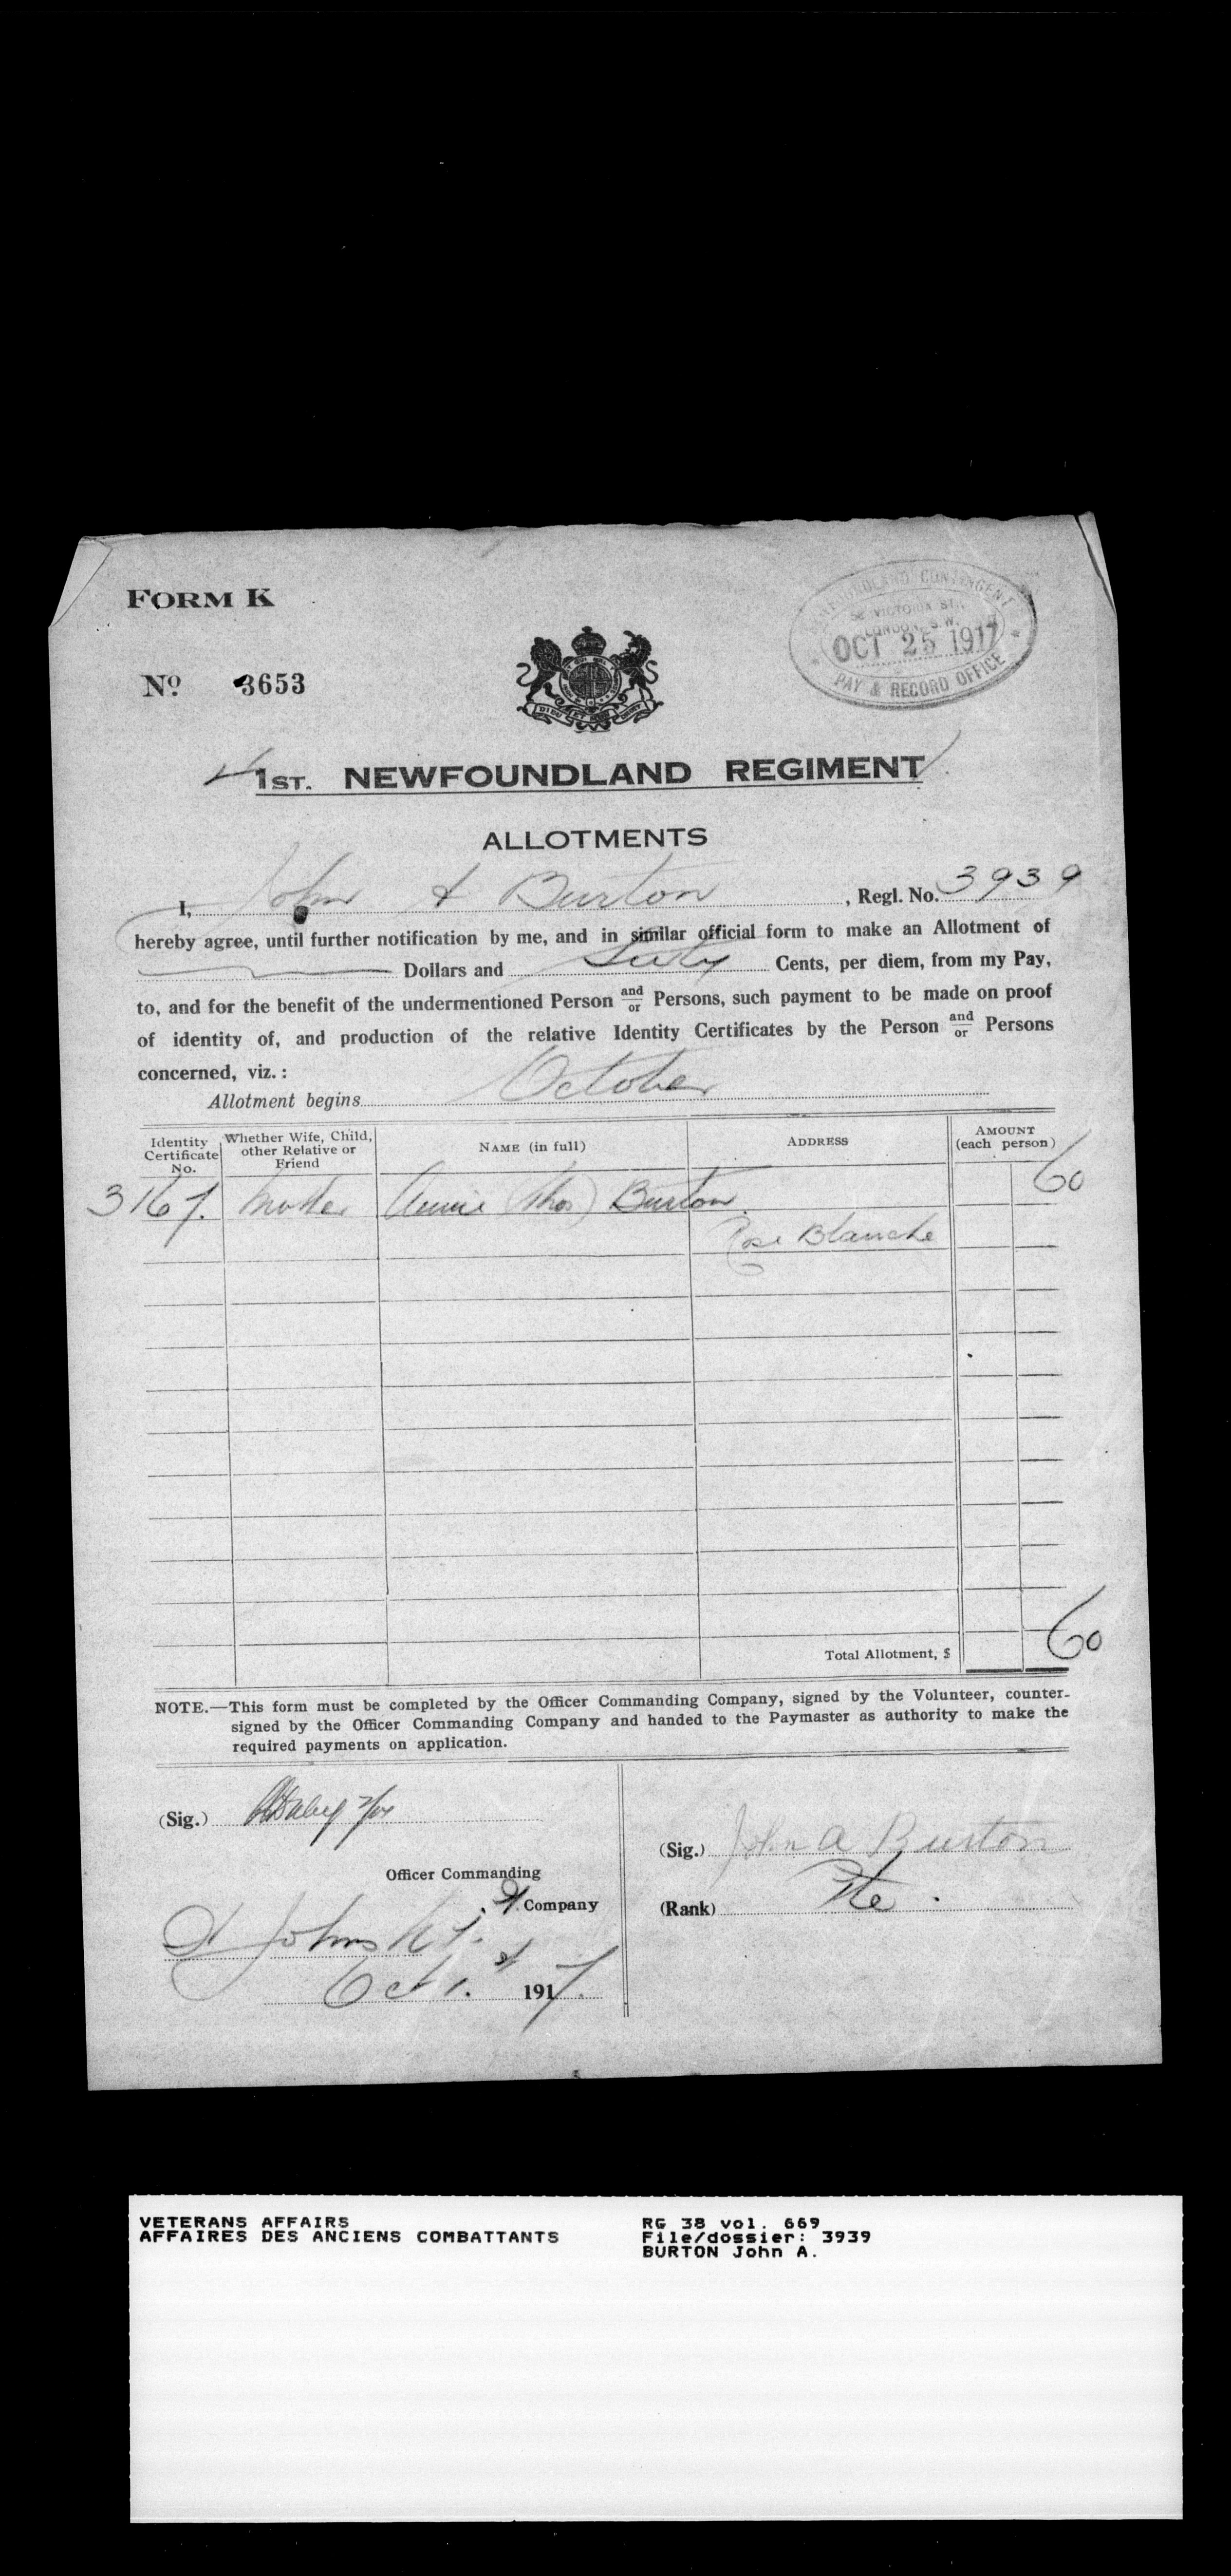 FORM K
NEWFOUNDLAND CONTINGENT
58 VICTORIA ST.,
LONDON, S.W.
OCT 25 1917
PAY & RECORD OFFICE
No. 3653
DIEU ET MON DROIT
1ST. NEWFOUNDLAND REGIMENT
ALLOTMENTS
I, John A Burton, Regl. No. 3939
hereby agree, until further notification by me, and in similar official form to make an Allotment of
Dollars and Sixty Cents, per diem, from my Pay,
to, and for the benefit of the undermentioned Person and/or Persons, such payment to be made on proof
of identity of, and production of the relative Identity Certificates by the Person and/or Persons
concerned, viz.:
Allotment begins October
Identity Certificate No. Whether Wife, Child, other Relative or Friend NAME (in full) ADDRESS AMOUNT (each person)
3167. Mother Annie (Thos) Burton. 60
Rose Blanche
Total Allotment, $ 60
NOTE.—This form must be completed by the Officer Commanding Company, signed by the Volunteer, counter-
signed by the Officer Commanding Company and handed to the Paymaster as authority to make the
required payments on application.
(Sig.)
Officer Commanding
Company
St Johns Nf.
Oct 1st 1917.
(Sig.) John A Burton
(Rank) Pte.
VETERANS AFFAIRS
AFFAIRES DES ANCIENS COMBATTANTS
RG 38 vol. 669
File/dossier: 3939
BURTON John A.